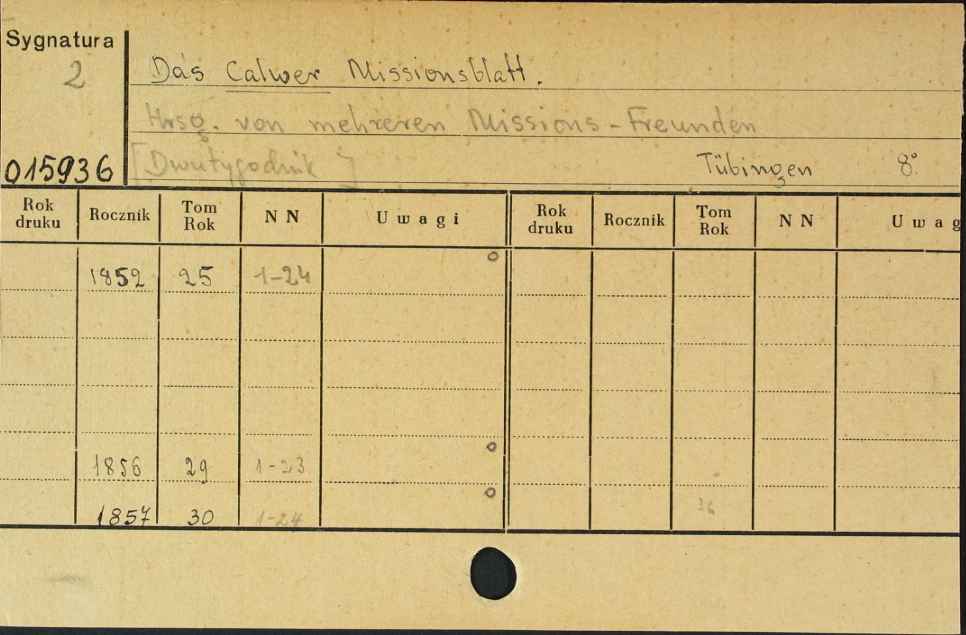 Sygnatura
2
Das Calwer Missionsblatt.
Hrsg. von mehreren Missions-Freunden
015936
[Dwutygodnik]
Tübingen 8°
Rok druku Rocznik Tom Rok NN Uwagi Rok druku Rocznik Tom Rok NN Uwag
1852 25 1-24
1856 29 1-23
1857 30 1-24
36